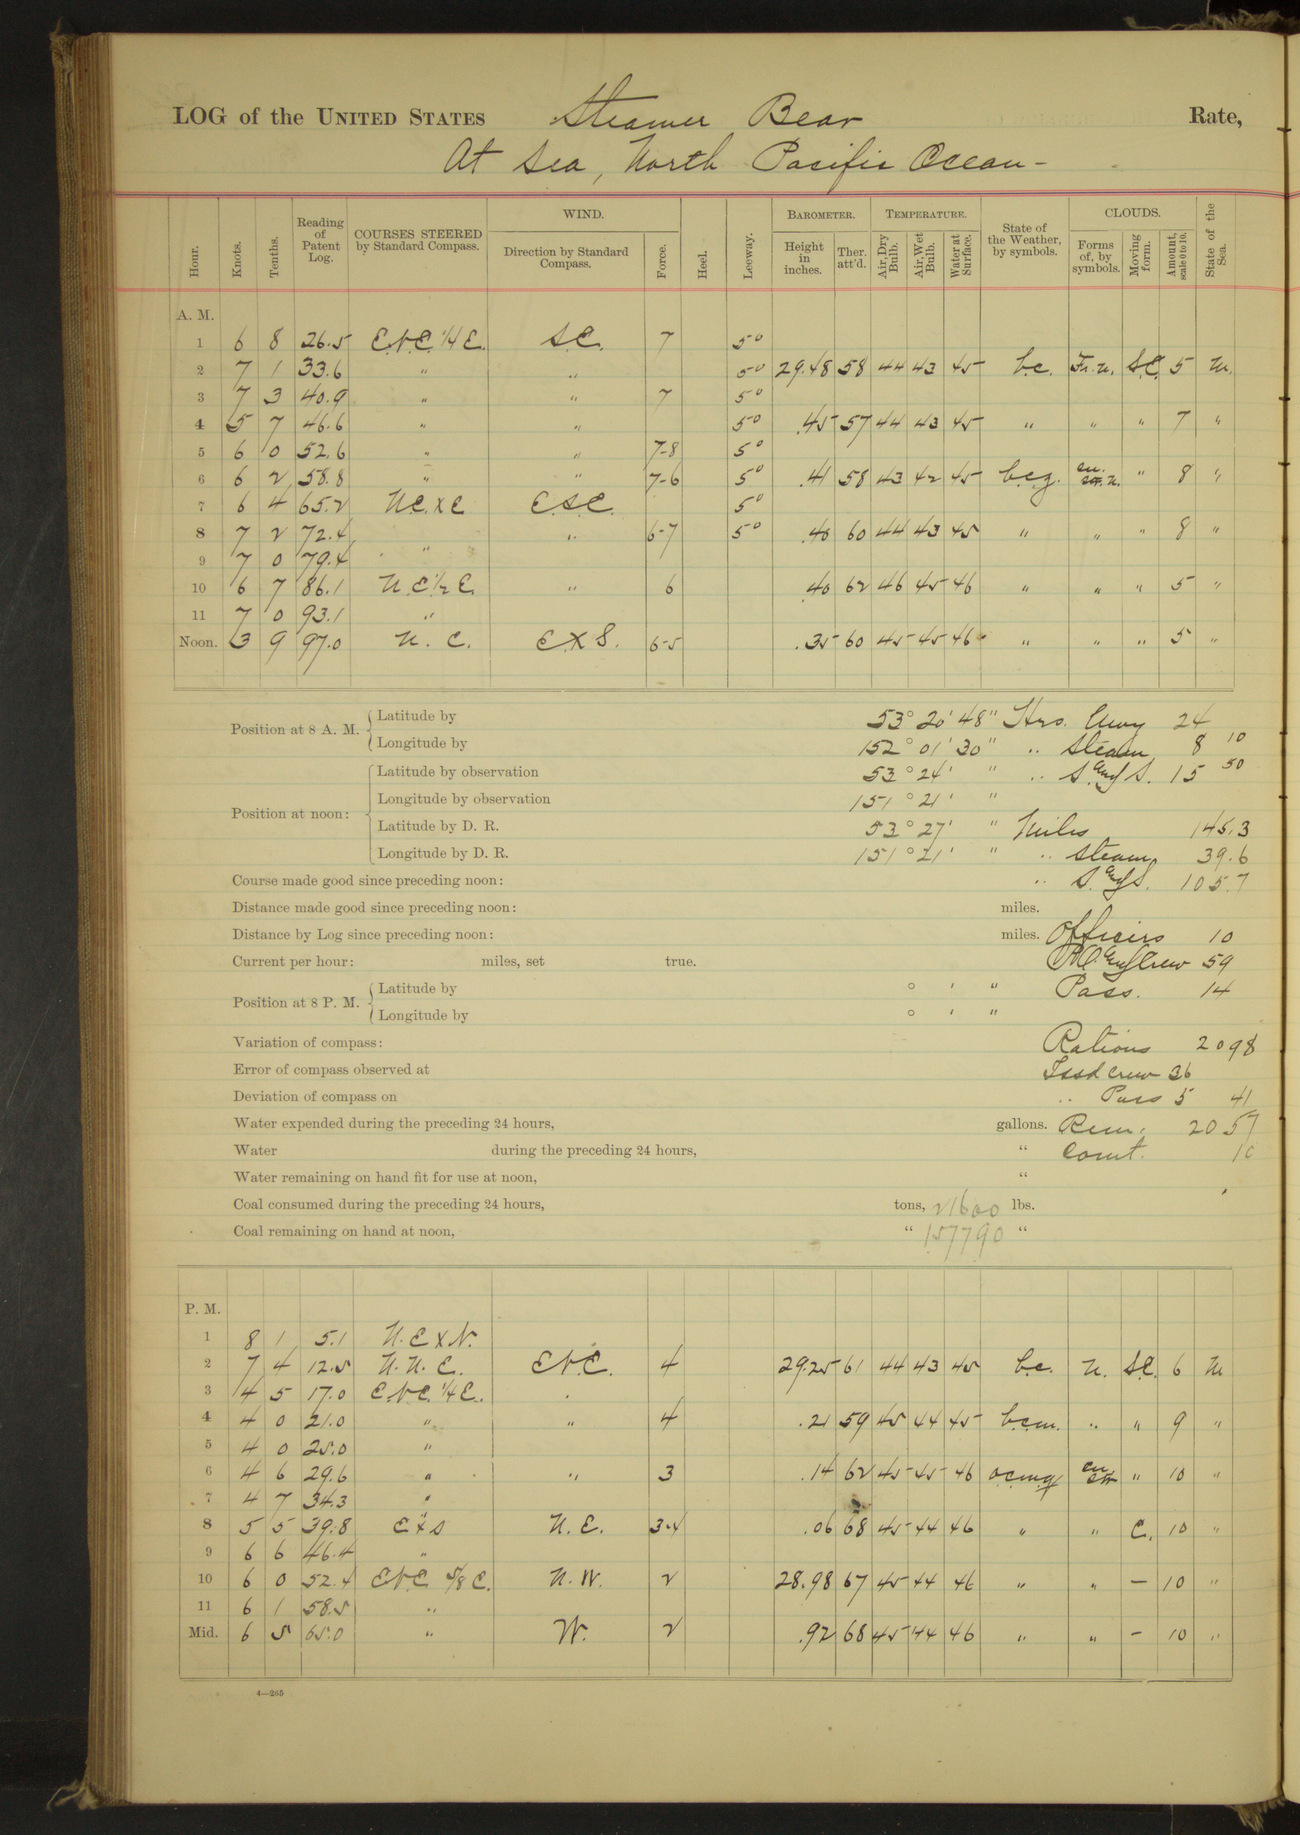 LOG of the UNITED STATES Steamer Bear Rate,
At Sea, North Pacific Ocean-
Hour. Knots. Tenths. Reading of Patent Log. COURSES STEERED by Standard Compass. WIND. Direction by Standard Compass. Force. Heel. Leeway. BAROMETER. Height in inches. Ther. att'd. TEMPERATURE. Air, Dry Bulb. Air, Wet Bulb. Water at Surface. State of the Weather, by symbols. CLOUDS. Forms of, by symbols. Moving form. Amount, scale 0 to 10. State of the Sea.
A. M.
1 6 8 26.5 E.N.E. 1/4 E. S.E. 7 5°
2 7 1 33.6 " " 5° 29.48 58 44 43 45 b.c. S.E. 5 M.
3 7 3 40.9 " " 7 5°
4 5 7 46.6 " " 5° .45 57 44 43 45 " " " 7 "
5 6 0 52.6 " " 7-8 5°
6 6 2 58.8 " " 7-6 5° .41 58 43 42 45 b.c.g. " 8 "
7 6 4 65.2 N.E. x E E.S.E. 5°
8 7 2 72.4 " " 6-7 5° .40 60 44 43 45 " " " 8 "
9 7 0 79.4 "
10 6 7 86.1 N.E. 1/2 E. " 6 .40 62 46 45 46 " " " 5 "
11 7 0 93.1 "
Noon. 3 9 97.0 N. E. E. X S. 6-5 .35 60 45 45 46 " " " 5 "
Position at 8 A. M. Latitude by 53° 20' 48" Hrs. Uwy 24
Longitude by 152° 01' 30" " Steam 8 10
Position at noon: Latitude by observation 53° 24' " " S. and S. 15 50
Longitude by observation 151° 21' "
Latitude by D. R. 53° 27' " Miles 145.3
Longitude by D. R. 151° 21' " " Steam 39.6
Course made good since preceding noon: " S. and S. 105.7
Distance made good since preceding noon: miles.
Distance by Log since preceding noon: miles. Officers 10
Current per hour: miles, set true. and Crew 59
Position at 8 P. M. Latitude by ° ' " Pass. 14
Longitude by ° ' "
Variation of compass: Rations 2098
Error of compass observed at Issd Crew 36
Deviation of compass on " Pass 5 41
Water expended during the preceding 24 hours, gallons. Rem. 2057
Water during the preceding 24 hours, " Comt. 10
Water remaining on hand fit for use at noon, "
Coal consumed during the preceding 24 hours, tons, 21600 lbs.
Coal remaining on hand at noon, " 157790 "
P. M.
1 8 1 5.1 N. E X N.
2 7 4 12.5 N. N. E. E.N.E. 4 29.25 61 44 43 45 b.c. N. S.E. 6 M
3 4 5 17.0 E.N.E. 1/4 E.
4 4 0 21.0 " " 4 .21 59 45 44 45 b.c.m. " " 9 "
5 4 0 25.0 "
6 4 6 29.6 " " 3 .14 62 45 45 46 " 10 "
7 4 7 34.3 "
8 5 5 39.8 E x S N. E. 3-4 .06 68 45 44 46 " " E. 10 "
9 6 6 46.4 "
10 6 0 52.4 E.N.E 5/8 E. N. W. 2 28.98 67 45 44 46 " " - 10 "
11 6 1 58.5 "
Mid. 6 5 65.0 " W. 2 .92 68 45 44 46 " " - 10 "
4—265